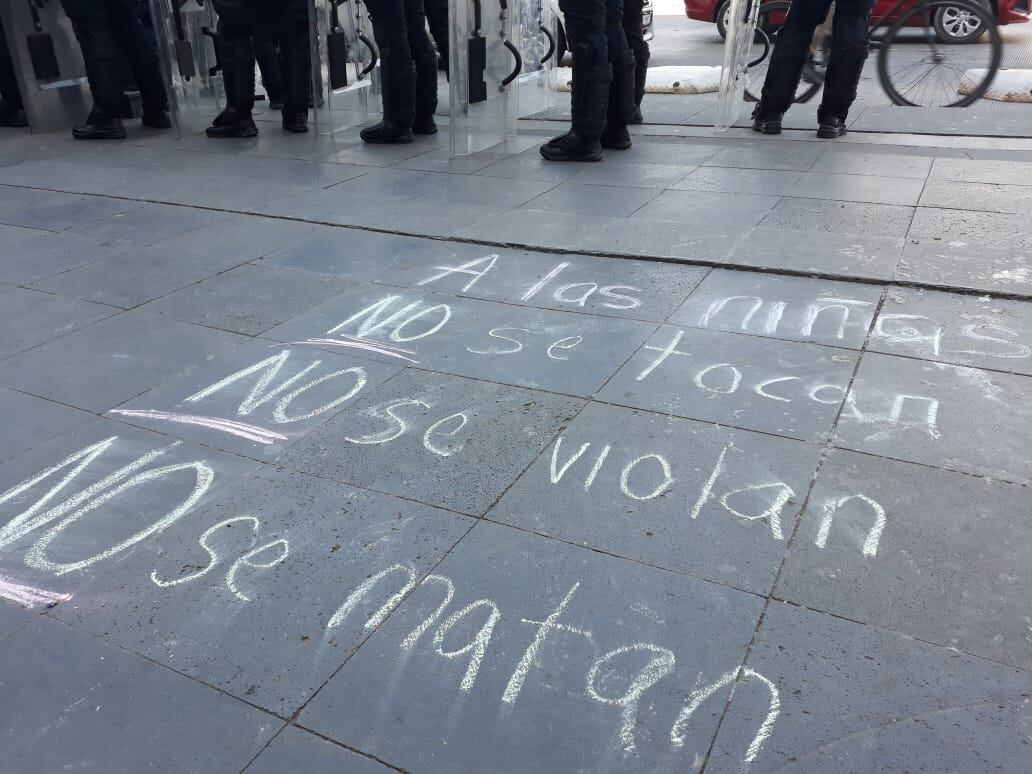 A las niñas
NO se tocan
NO se violan
NO se matan